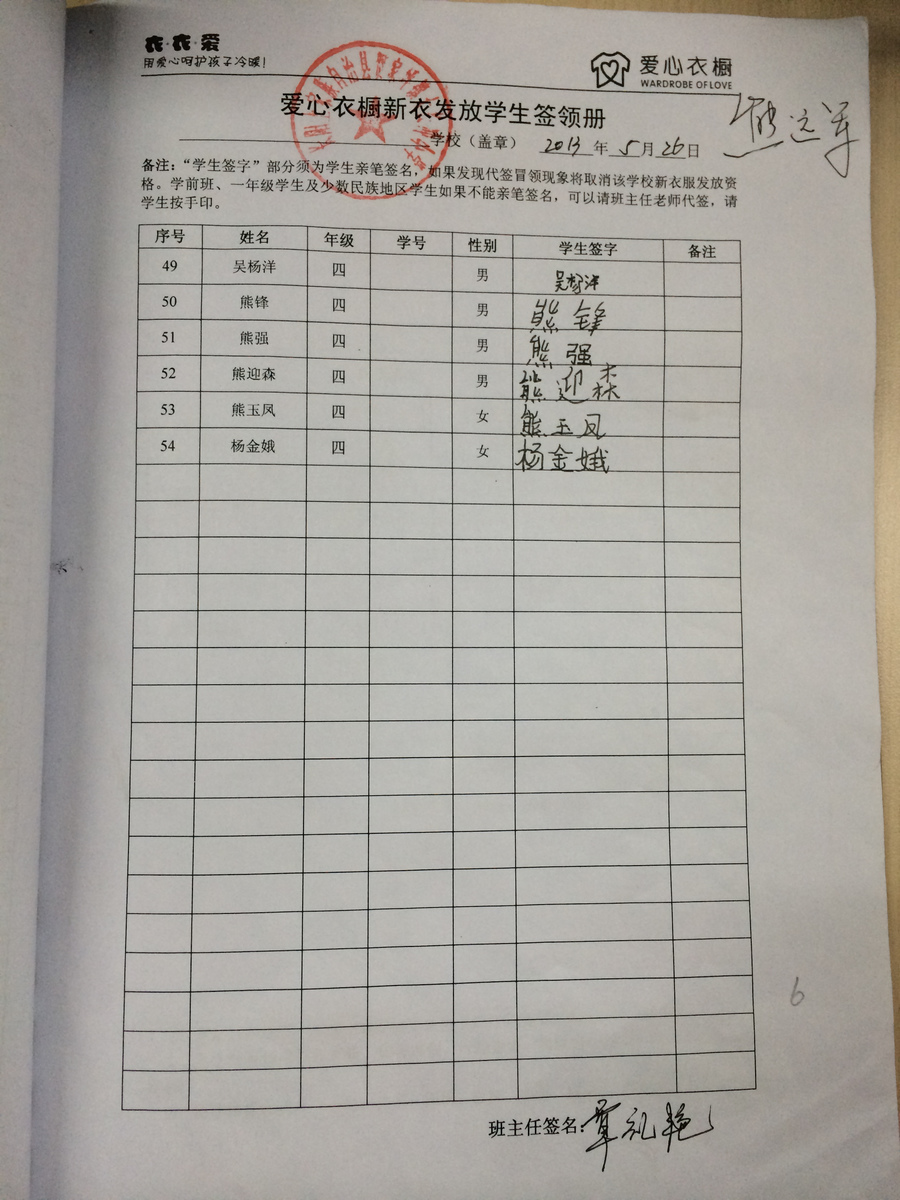 衣·衣·爱
用爱心呵护孩子冷暖！
爱心衣橱
WARDROBE OF LOVE
爱心衣橱新衣发放学生签领册
熊远军
学校（盖章） 2013 年 5 月 26 日
备注：“学生签字”部分须为学生亲笔签名，如果发现代签冒领现象将取消该学校新衣服发放资
格。学前班、一年级学生及少数民族地区学生如果不能亲笔签名，可以请班主任老师代签，请
学生按手印。
序号 姓名 年级 学号 性别 学生签字 备注
49 吴杨洋 四 男 吴杨洋
50 熊锋 四 男 熊锋
51 熊强 四 男 熊强
52 熊迎森 四 男 熊迎森
53 熊玉凤 四 女 熊玉凤
54 杨金娥 四 女 杨金娥
6
班主任签名：覃礼艳